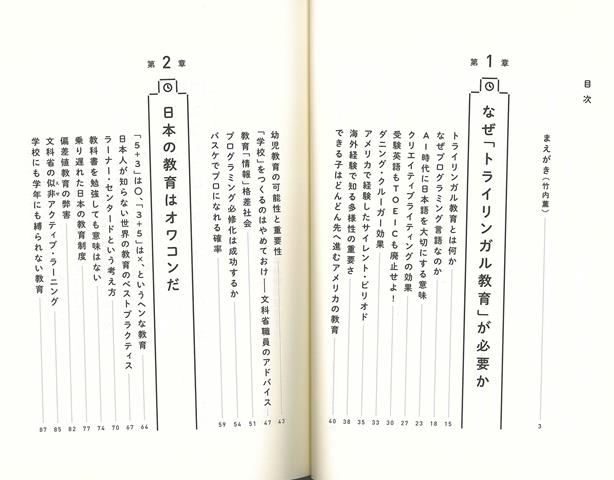 目次
まえがき（竹内薫） 3
第1章
なぜ「トライリンガル教育」が必要か
トライリンガル教育とは何か 15
なぜプログラミング言語なのか 18
AI時代に日本語を大切にする意味 23
クリエイティブライティングの効果 27
受験英語もTOEICも廃止せよ！ 30
ダニング・クルーガー効果 33
アメリカで経験したサイレント・ピリオド 35
海外経験で知る多様性の重要さ 38
できる子はどんどん先へ進むアメリカの教育 40
幼児教育の可能性と重要性 43
「学校」をつくるのはやめておけ――文科省職員のアドバイス 47
教育「情報」格差社会 51
プログラミング必修化は成功するか 54
バスケでプロになれる確率 59
第2章
日本の教育はオワコンだ
「5+3」は〇、「3+5」は×、というヘンな教育 64
日本人が知らない世界の教育のベストプラクティス 67
ラーナー・センタードという考え方 70
教科書を勉強しても意味はない 74
乗り遅れた日本の教育制度 77
偏差値教育の弊害 82
文科省の似非アクティブ・ラーニング 85
学校にも学年にも縛られない教育 87